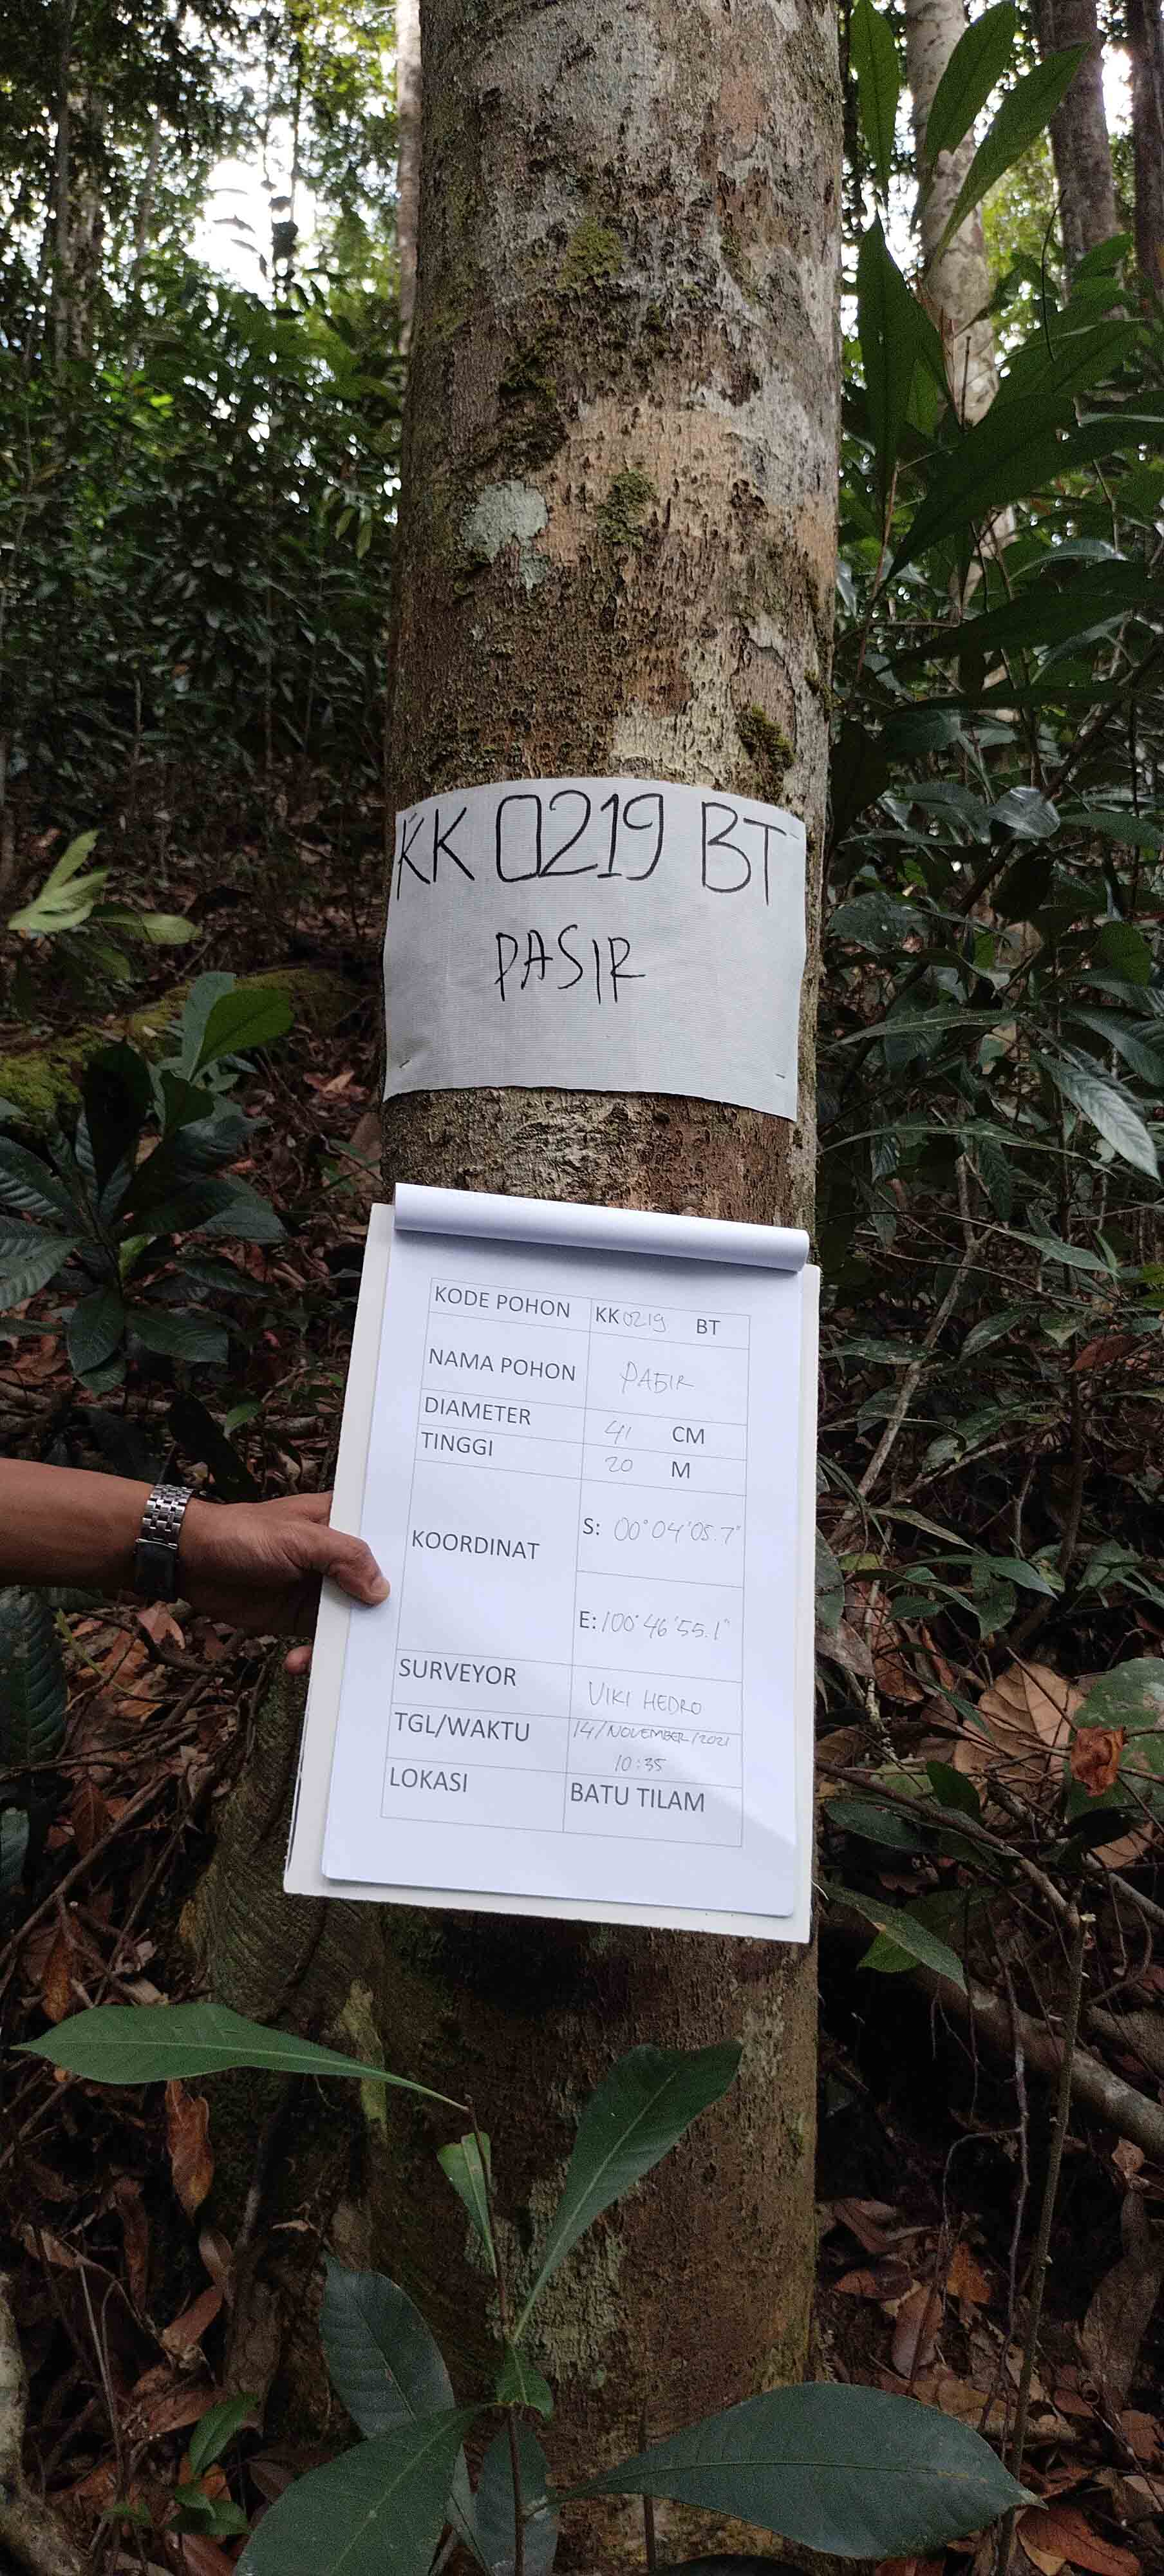 KK 0219 BT
PASIR
KODE POHON KK 0219 BT
NAMA POHON PASIR
DIAMETER 41 CM
TINGGI 20 M
KOORDINAT
S: 00°04'05.7"
E: 100°46'55.1"
SURVEYOR VIKI HEDRO
TGL/WAKTU 14/NOVEMBER/2021
10:35
LOKASI BATU TILAM